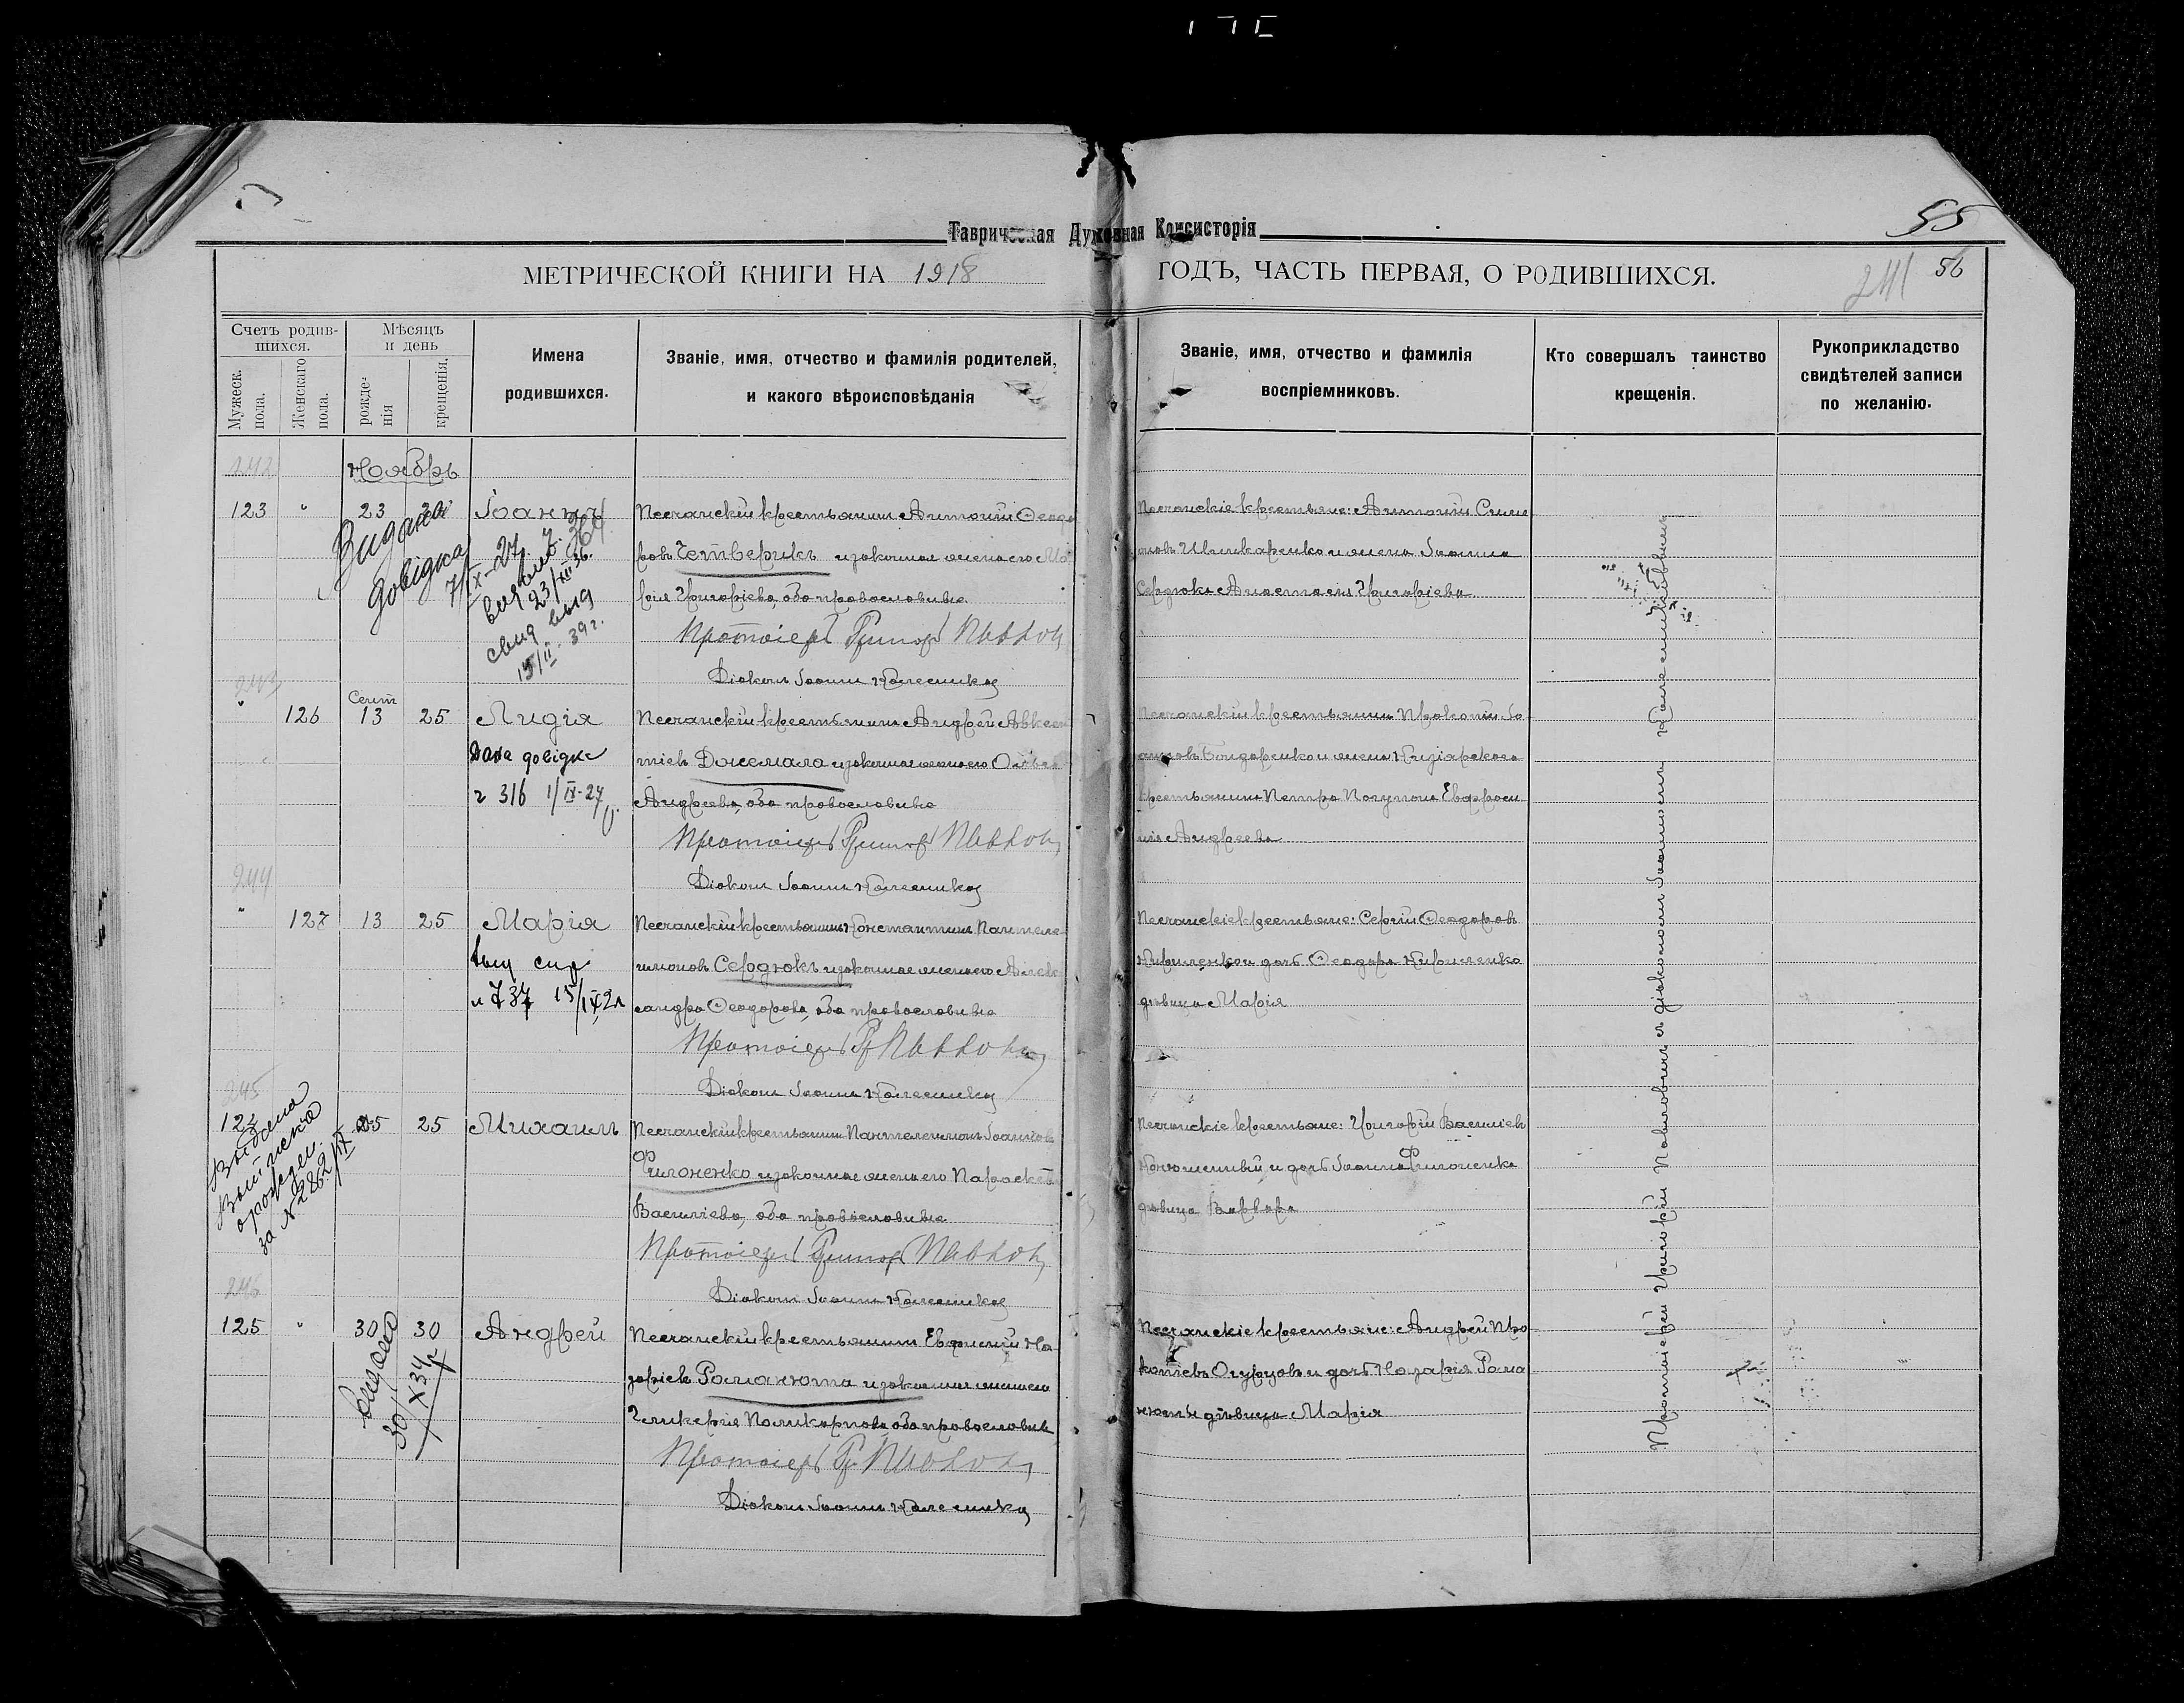 Таврическая Духовная Консисторія
55
МЕТРИЧЕСКОЙ КНИГИ НА 1918 ГОДЪ, ЧАСТЬ ПЕРВАЯ, О РОДИВШИХСЯ.
241
56
Счетъ родив-
шихся.
Мужеск. пола.
Женскаго пола.
Мѣсяцъ
и день
рожде-
нія
крещенія.
Имена
родившихся.
Званіе, имя, отчество и фамилія родителей,
и какого вѣроисповѣданія
Званіе, имя, отчество и фамилія
воспріемниковъ.
Кто совершалъ таинство
крещенія.
Рукоприкладство
свидѣтелей записи
по желанію.
242
Ноябрь
123 " 23
Іоаннъ
Видана
довідка
7/IX-27
23/XII 36.
свид выд
15/II 39 г.
Песчанскій крестьянинъ Антоній Ѳеодо
ровъ Четверикъ и законная жена его Ма
рія Григоріева, оба православные
Протоіерей Григор Павлов
Діаконъ Іоаннъ Колесников
Песчанскіе крестьяне: Антоній
и жена Іоанна
Сердюка Анастасія Григоріева
243
" 126
Сент
13 25
Лидія
Дана довідка
316 1/IX-27
Песчанскій крестьянинъ Андрей Авксен
тіевъ Джемала и законная жена его
Андреева, оба православные
Протоіерей Григор Павлов
Діаконъ Іоаннъ Колесников
Песчанскій крестьянинъ Прокопій Іо
анновъ Бондаренко и жена
крестьянина Петра Евфроси
нія Андреева
244
" 127 13 25
Марія
737 15/IX
Песчанскій крестьянинъ Константинъ Пантеле
имоновъ Сердюкъ и законная жена его Алек
сандра Ѳеодорова, оба православные
Протоіерей Гр Павлов
Діаконъ Іоаннъ Колесников
Песчанскіе крестьяне: Сергій Ѳеодоровъ
Кириленко и дочь Ѳеодора Кириленко
дѣвица Марія
245
25 25
Михаилъ
Выдана
выписка
о рожден.
за № 2862
Песчанскій крестьянинъ Пантелеимонъ Іоанновъ
Филоненко и законная жена его Параскева
Васильева, оба православные
Протоіерей Григор Павлов
Діаконъ Іоаннъ Колесников
Песчанскіе крестьяне: Григорій Васильевъ
и дочь Іоанна Филоненко
дѣвица Варвара
246
125 " 30 30
Андрей
Выдано
30/X 34 г
Песчанскій крестьянинъ Евфимій На
заріевъ Романюта и законная жена его
Гликерія Поликарпова, оба православные
Протоіерей Гр Павлов
Діаконъ Іоаннъ Колесников
Песчанскіе крестьяне: Андрей Про
копіевъ Огурцовъ и дочь Назарія Рома
нюты дѣвица Марія
Протоіерей Григорій Павловичъ съ діакономъ Іоанномъ